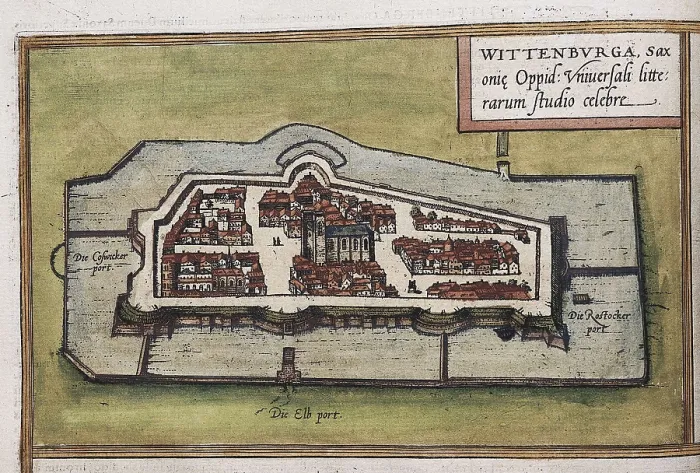 WITTENBVRGA, Sax
onię Oppid: Vniuerſali litte:
rarum ſtudio celebre
Die Coſwicker
port.
Die Roſtocker
port
Die Elb port.